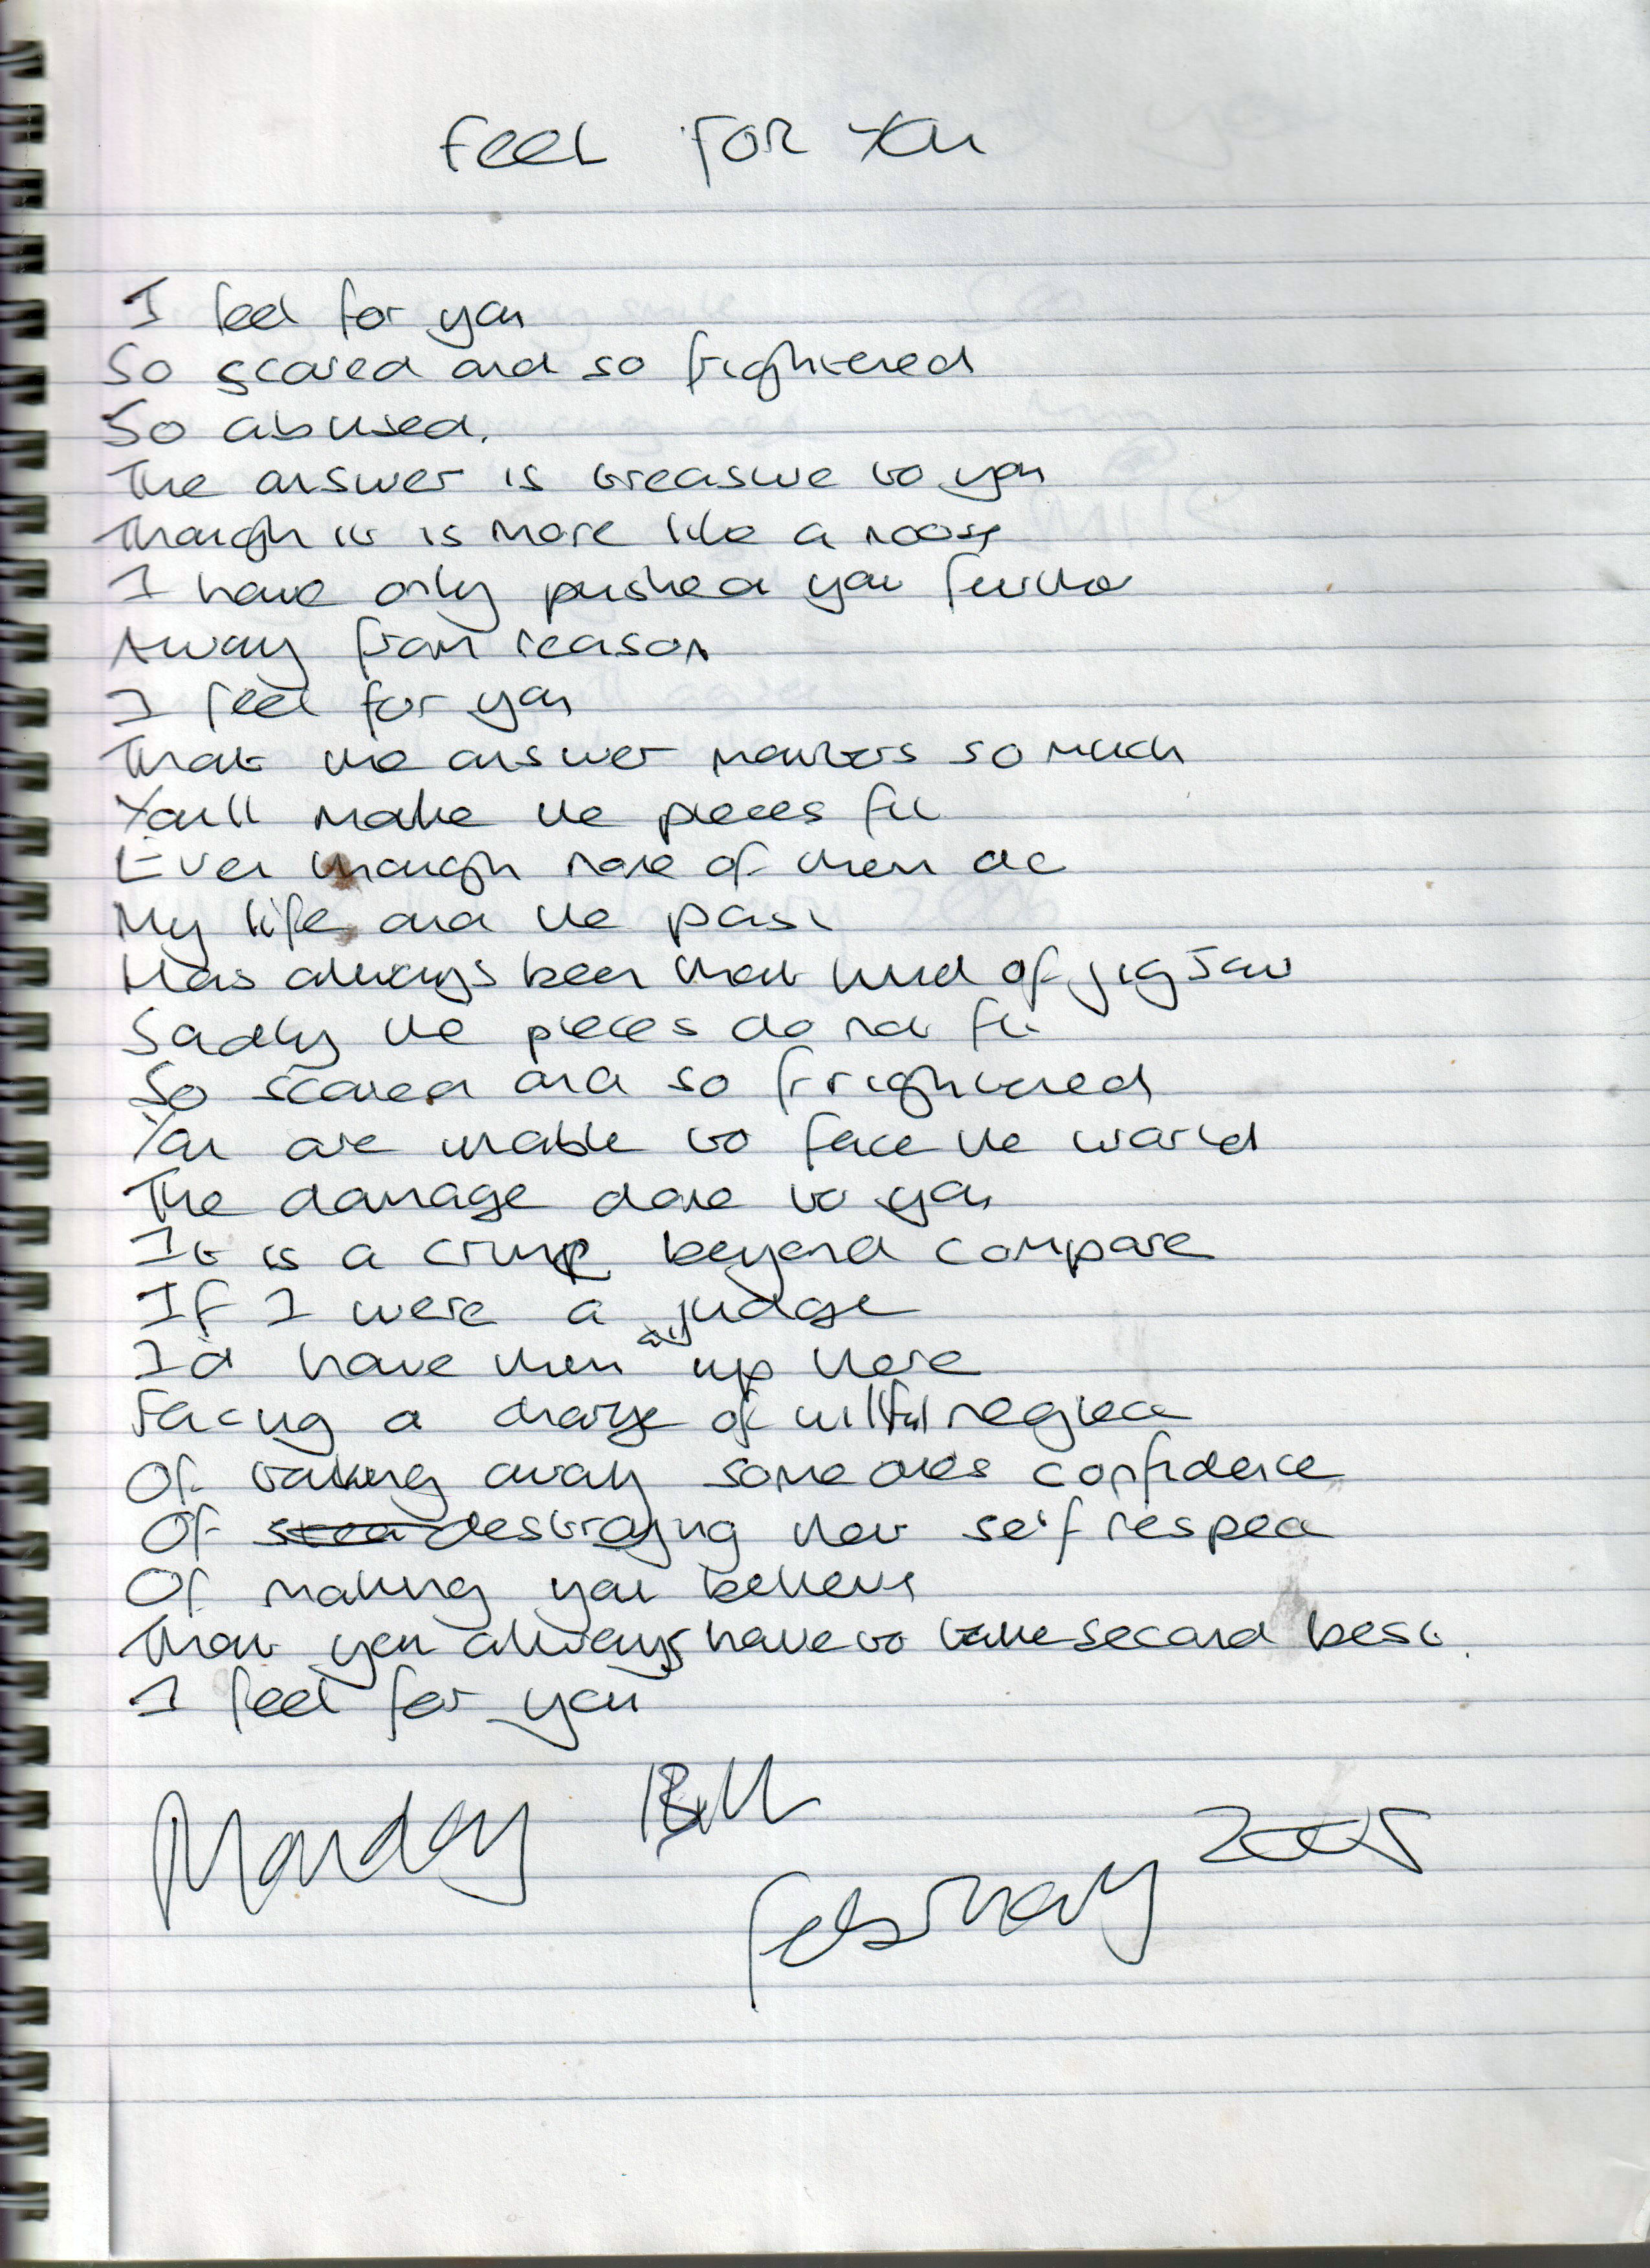 Feel For You
I feel for you
So scared and so frightened
So abused.
The answer is treasure to you
Though it is more like a noose
I have only pushed you further
Away from reason
I feel for you
That the answer matters so much
You'll make the pieces fit
Even though none of them do
My life and the past
Has always been that kind of jigsaw
Sadly the pieces do not fit
So scared and so frightened
You are unable to face the world
The damage done to you
It is a crime beyond compare
If I were a judge
I'd have them all up here
Facing a charge of willful neglect
Of taking away someones confidence
Of destroying their self respect
Of making you believe
That you always have to take second best.
I feel for you
Monday
February 2005